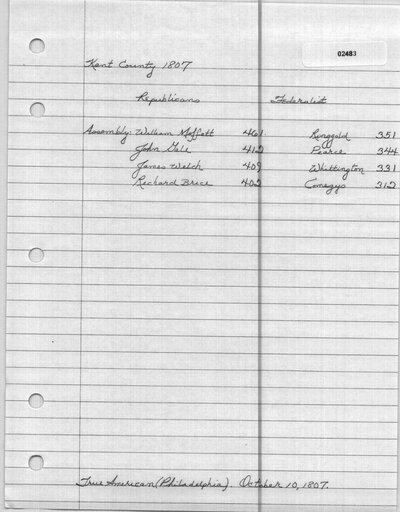 02483
Kent County 1807
Republicans Federalist
Assembly: William Moffett 461. Ringgold 351
John Gale 412 Pearce 344
James Welch 409 Whittington 331
Richard Brice 402 Comegys 312
True American (Philadelphia). October 10, 1807.